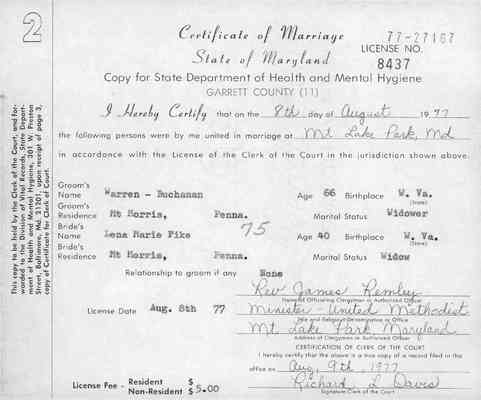 2
Certificate of Marriage
77-27167
State of Maryland
LICENSE NO.
8437
Copy for State Department of Health and Mental Hygiene
GARRETT COUNTY (11)
I Hereby Certify that on the 8th day of August 1977
the following persons were by me united in marriage at Mt Lake Park, Md
in accordance with the License of the Clerk of the Court in the jurisdiction shown above.
Groom's Name Warren - Buchanan Age 66 Birthplace W. Va.
(State)
Groom's Residence Mt Morris, Penna. Marital Status Widower
75
Bride's Name Lena Marie Pike Age 40 Birthplace W. Va.
(State)
Bride's Residence Mt Morris, Penna. Marital Status Widow
Relationship to groom if any None
Rev James Remley
Name of Officiating Clergyman or Authorized Officer
License Date Aug. 8th 77 Minister - United Methodist
Title and Religious Denomination or Office
Mt Lake Park, Maryland
Address of Clergyman or Authorized Officer
CERTIFICATION OF CLERK OF THE COURT
I hereby certify that the above is a true copy of a record filed in this
office on Aug. 9th, 1977
License Fee - Resident $
Non-Resident $ 5.00
Richard L Davis
Signature Clerk of the Court
This copy to be held by the Clerk of the Court, and for-
warded to the Division of Vital Records, State Depart-
ment of Health and Mental Hygiene, 301 W. Preston
Street, Baltimore, Md. 21201, upon receipt of page 3,
copy of Certificate for Clerk of Court.